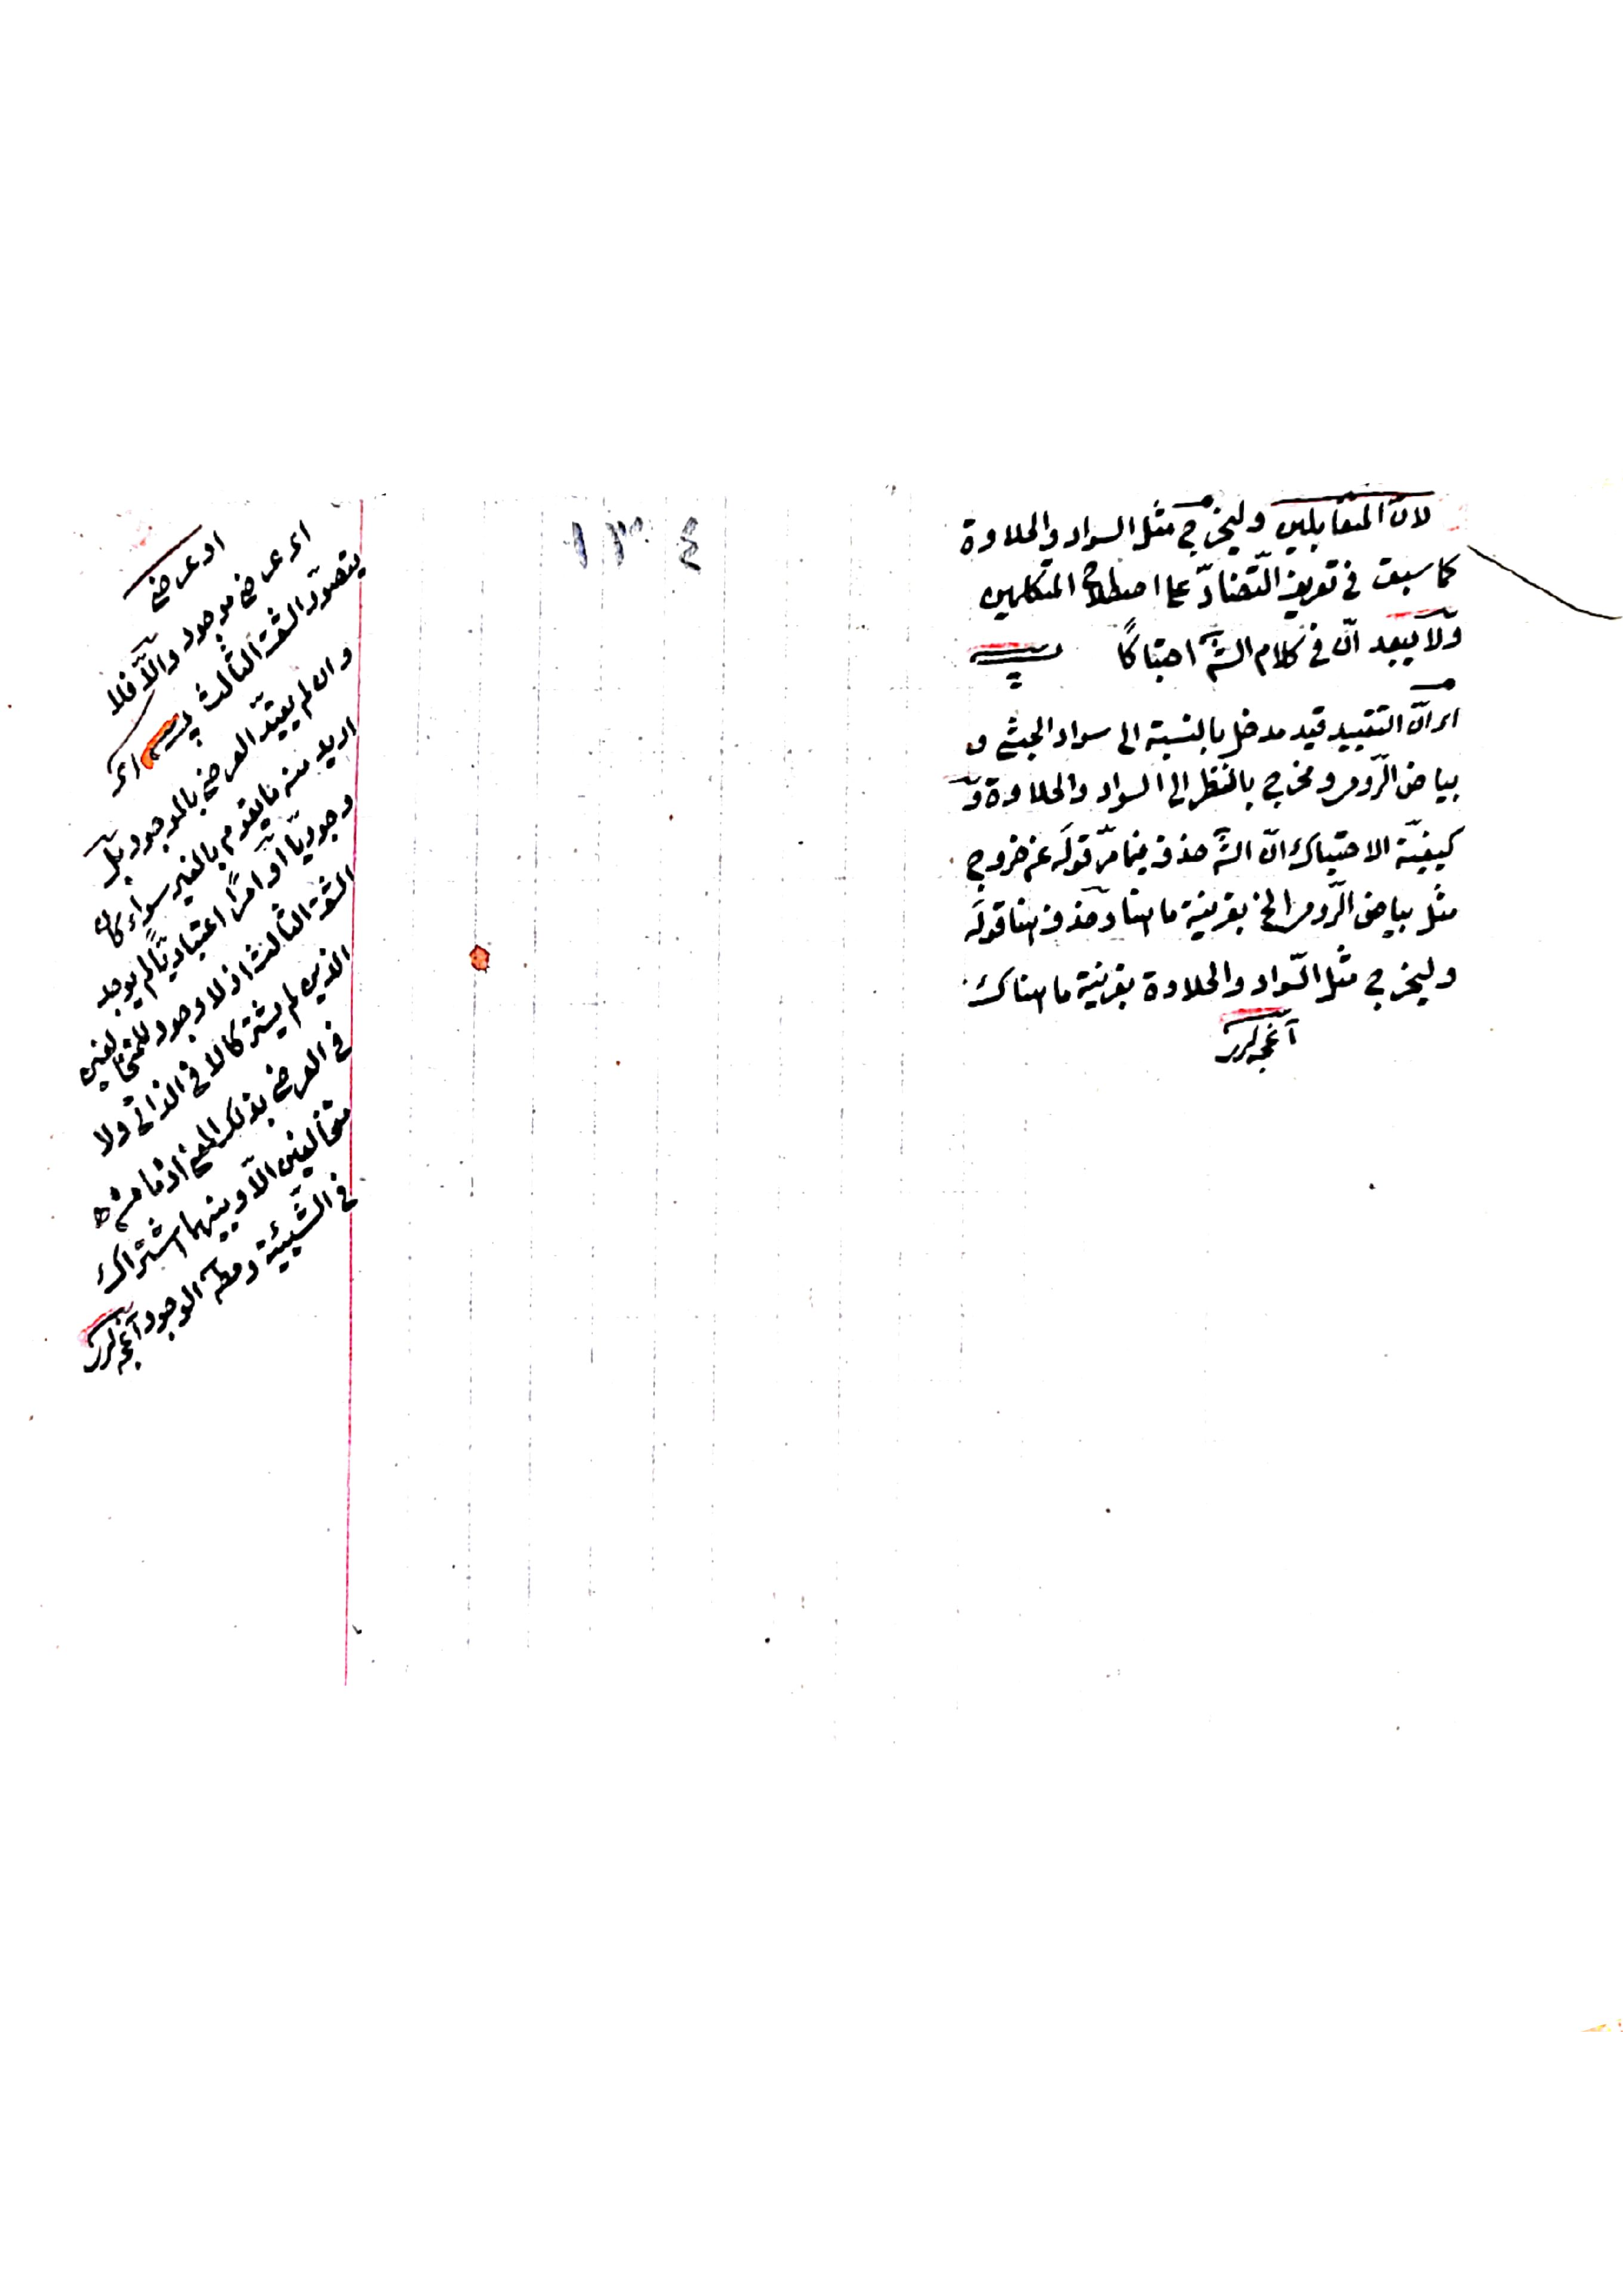 لانّ المتقابلين وليخرج مثل السواد والحلاوة
كما سبق فى تعريف التّضادّ على اصطلاح المتكلمين
ولا يبعد انّ فى كلام الشّه احتباكًا
اى انّ التقييد قيد مدخل بالنسبة الى سواد الحبشى و
بياض الرّومى ومخرج بالنظر الى السواد والحلاوة و
كيفيّة الاحتباك انّ الشه حذف فيما مرّ قوله عن خروج
مثل بياض الرّومى الخ بقرينة ما هنا وحذف هنا قوله
وليخرج مثل السّواد والحلاوة بقرينة ما هناك
١٣٠٤
او عرضى
اى عرضى موجود والّا فلا
يتصوّر الشق الثالث
اى
وان لم يقيّد العرضى بالموجود بل
اريد منه ما يقوم بالغير سواء كان
وجوديّا او امرًا اعتباريّا لم يوجد
الشق الثالث اذ لا وجود للمتخالفين
الذين لم يشتركا لا فى الذاتى ولا
فى العرضى بذلك المعنى اذ ما من
متخالفين الّا وبينهما اشتراك
فى الشّيئية ومط الوجود